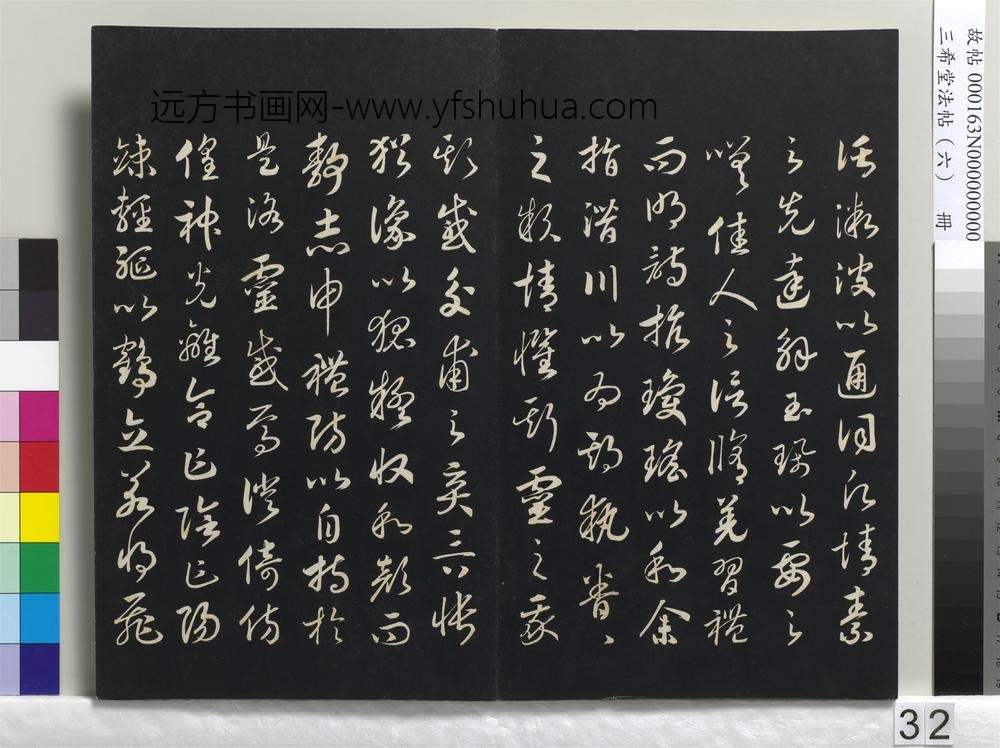 託微波以通詞願情素
之先達解玉珮以要之
嗟佳人之信脩羌習禮
而明詩抗瓊瑤以和余
指潛川以為期執眷〻
之款情懼斯靈之我
欺感交甫之棄言悵
猶豫以狐疑收和顏而
靜志申禮防以自持於
是洛靈感焉徙倚彷
徨神光離合乍陰乍陽
竦輕軀以鶴立若將飛
远方书画网-www.yfshuhua.com
故帖 000163N000000000
三希堂法帖（六） 冊
32